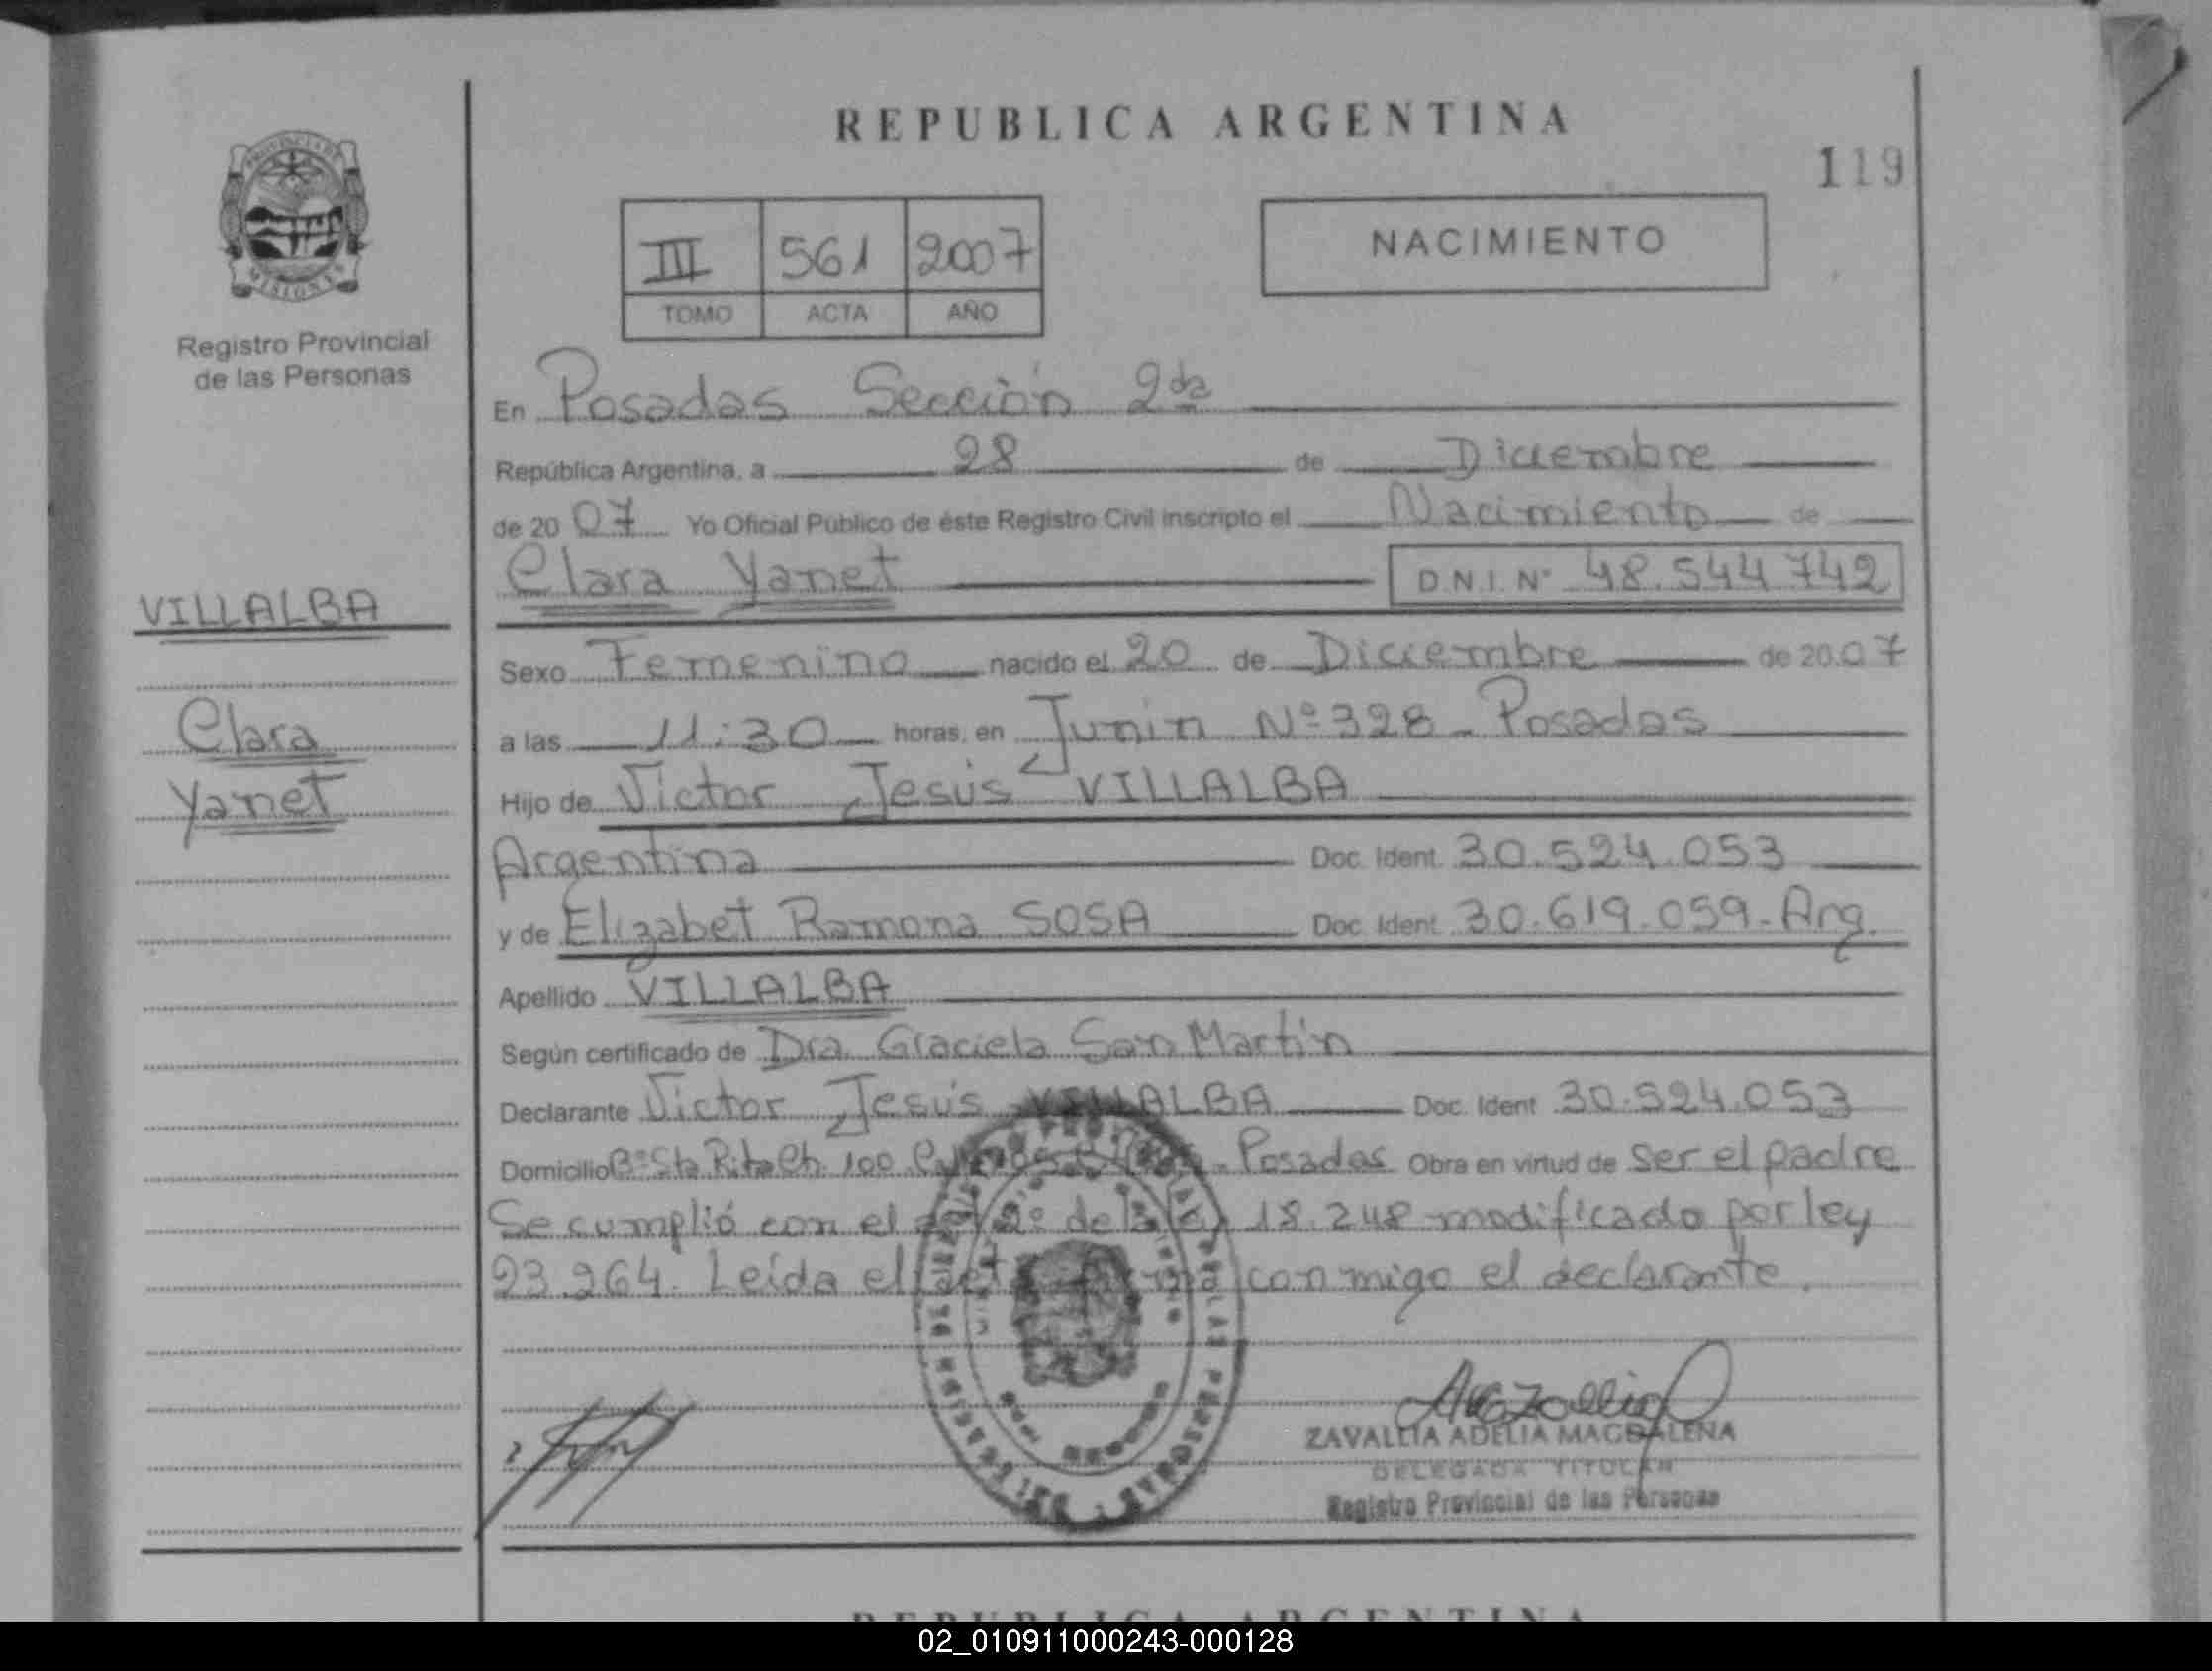 REPUBLICA ARGENTINA
119
PROVINCIA DE
MISIONES
Registro Provincial
de las Personas
III 561 2007
TOMO ACTA AÑO
NACIMIENTO
En Posadas Sección 2da
República Argentina, a 28 de Diciembre
de 20 07 Yo Oficial Público de éste Registro Civil inscripto el Nacimiento de
Clara Yanet D.N.I. Nº 48.544.742
VILLALBA
Clara
Yanet
Sexo Femenino nacido el 20 de Diciembre de 20 07
a las 11:30 horas, en Junin Nº 328 - Posadas
Hijo de Victor Jesús VILLALBA
Argentina Doc. Ident. 30.524.053
y de Elizabet Ramona SOSA Doc. Ident. 30.619.059 - Arg.
Apellido VILLALBA
Según certificado de Dra. Graciela San Martín
Declarante Victor Jesús VILLALBA Doc. Ident. 30.524.053
Domicilio Bº Sta Rita Ch. 100 - Posadas Obra en virtud de ser el padre
Se cumplió con el art 2º de la ley 18.248 modificado por ley
23.264. Leída el acta firma conmigo el declarante.
ZAVALLIA ADELIA MAGDALENA
DELEGADA TITULAR
Registro Provincial de las Personas
REPUBLICA ARGENTINA
02_010911000243-000128